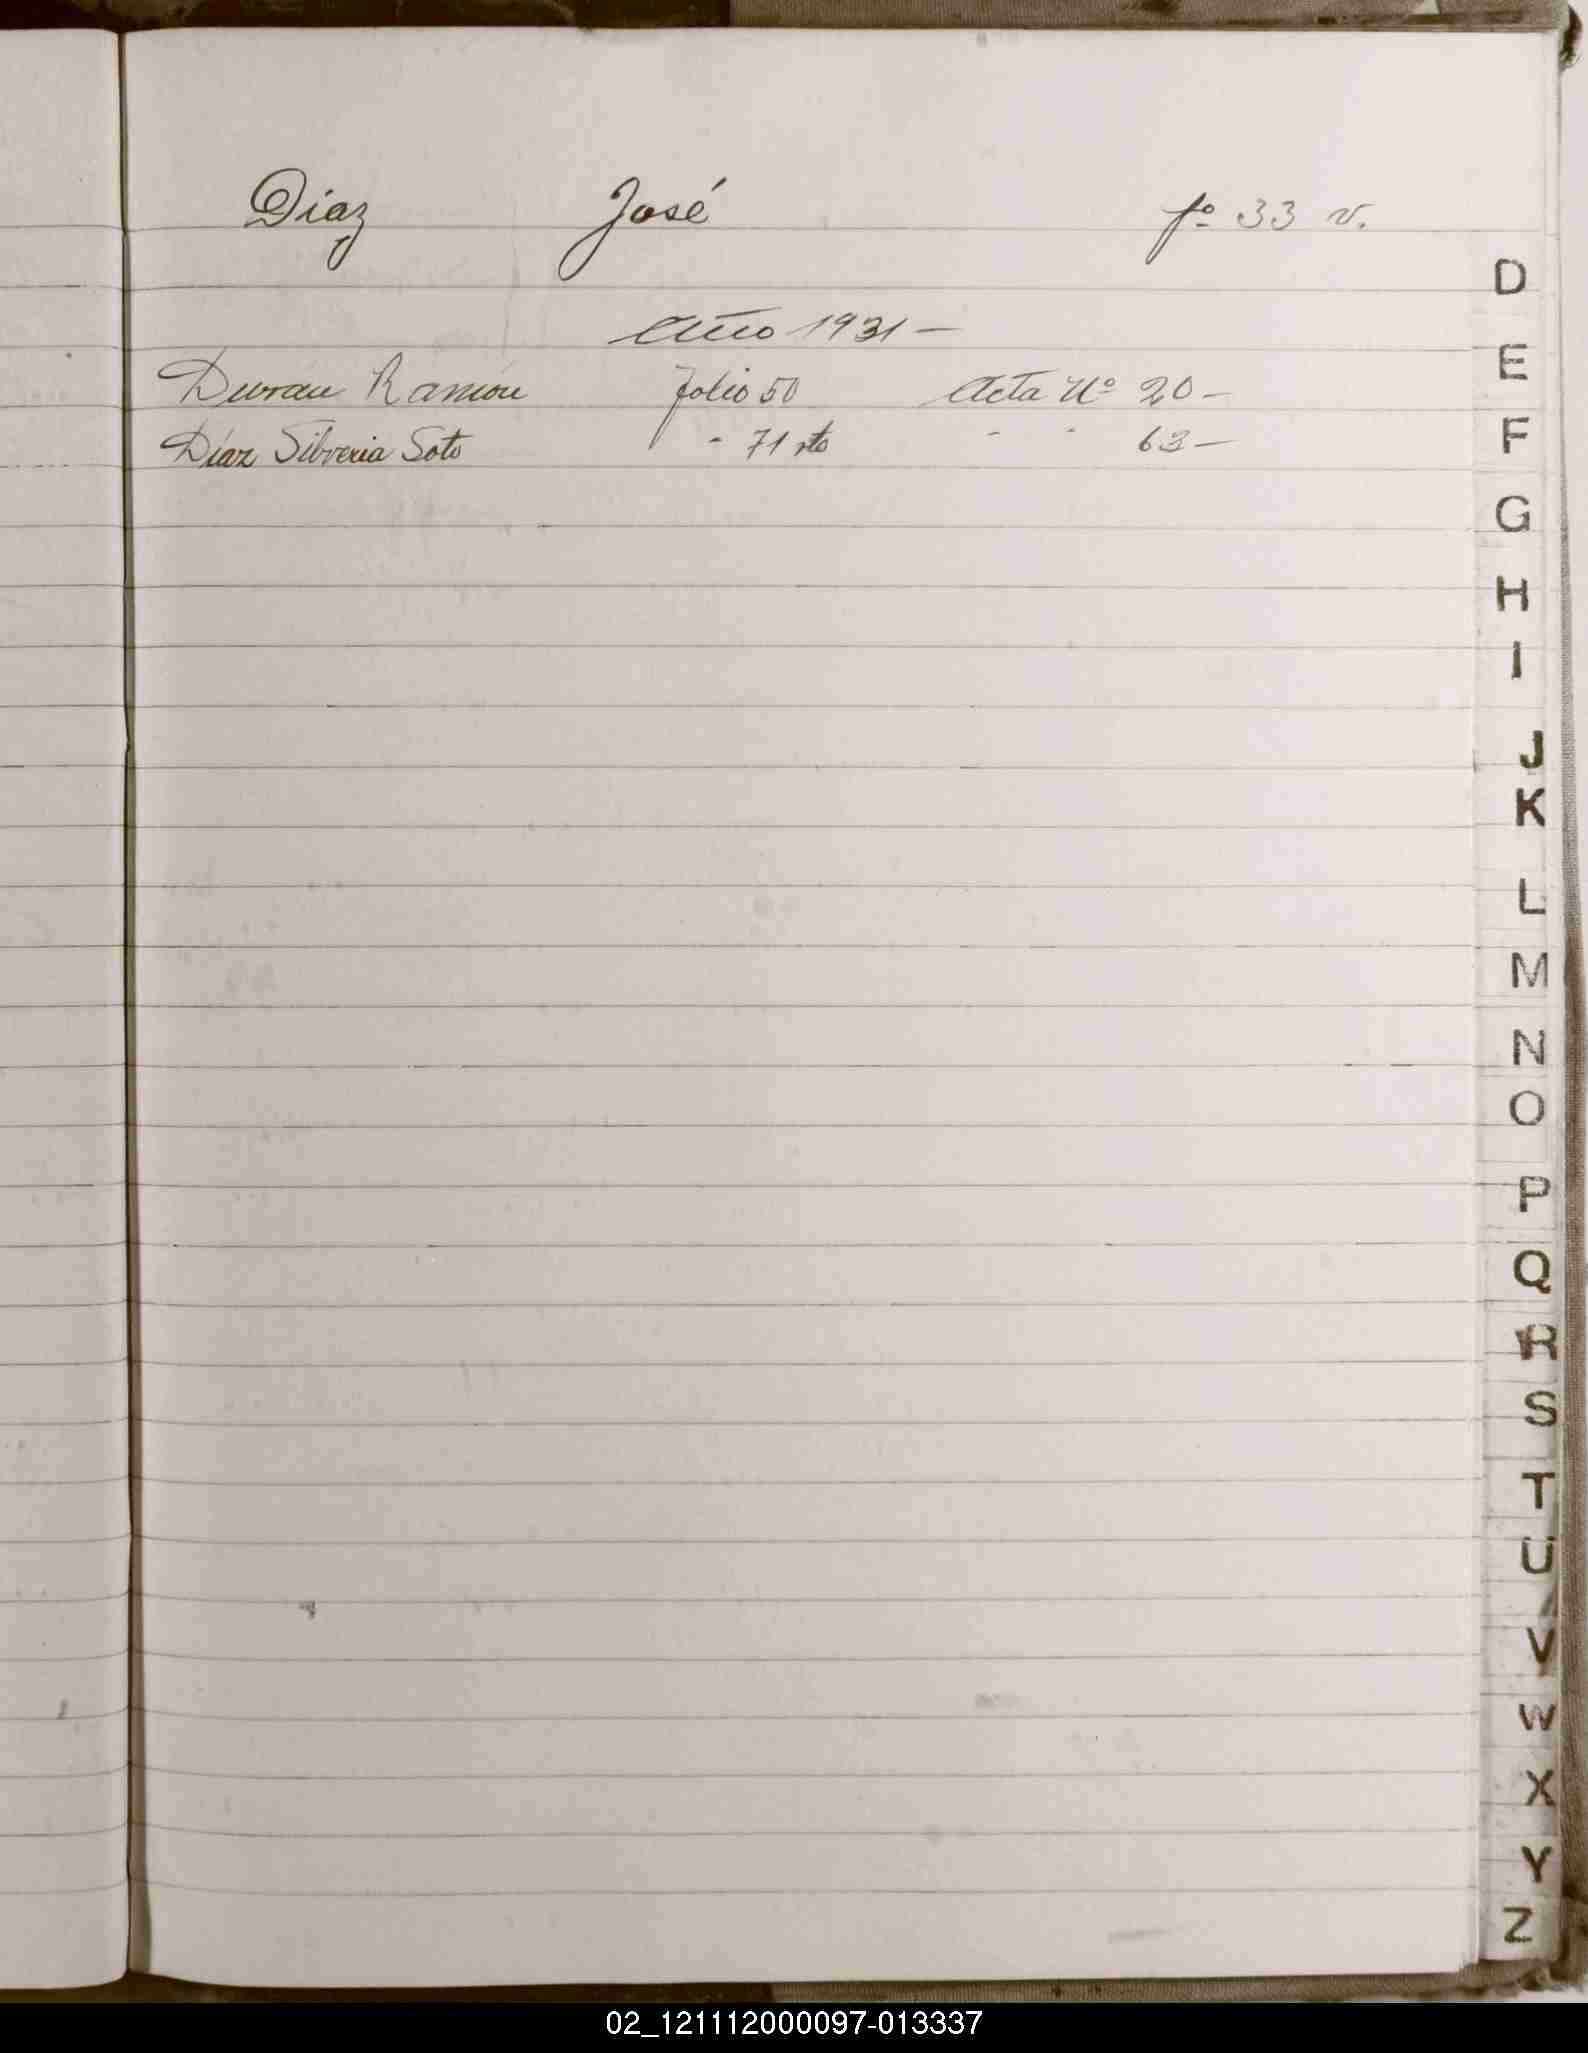 Díaz José fº 33 v.
Año 1931 —
Durán Ramón folio 50 Acta Nº 20 —
Díaz Silveria Soto " 71 vto " " 63 —
D
E
F
G
H
I
J
K
L
M
N
O
P
Q
R
S
T
U
V
W
X
Y
Z
02_121112000097-013337